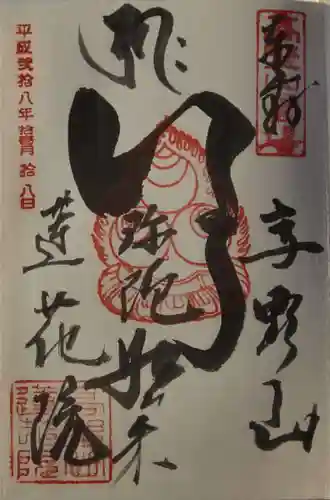 奉拝
高野山
阿弥陀如来
蓮花院
平成弐拾八年拾壹月拾八日